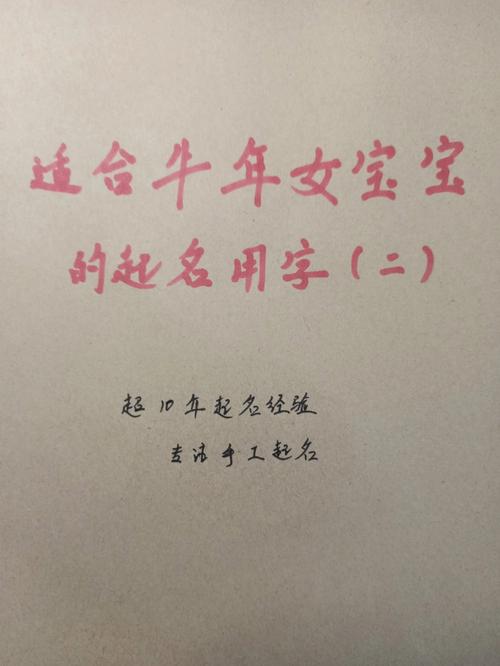 适合牛年女宝宝
的起名用字(二)
超10年起名经验
专注手工起名